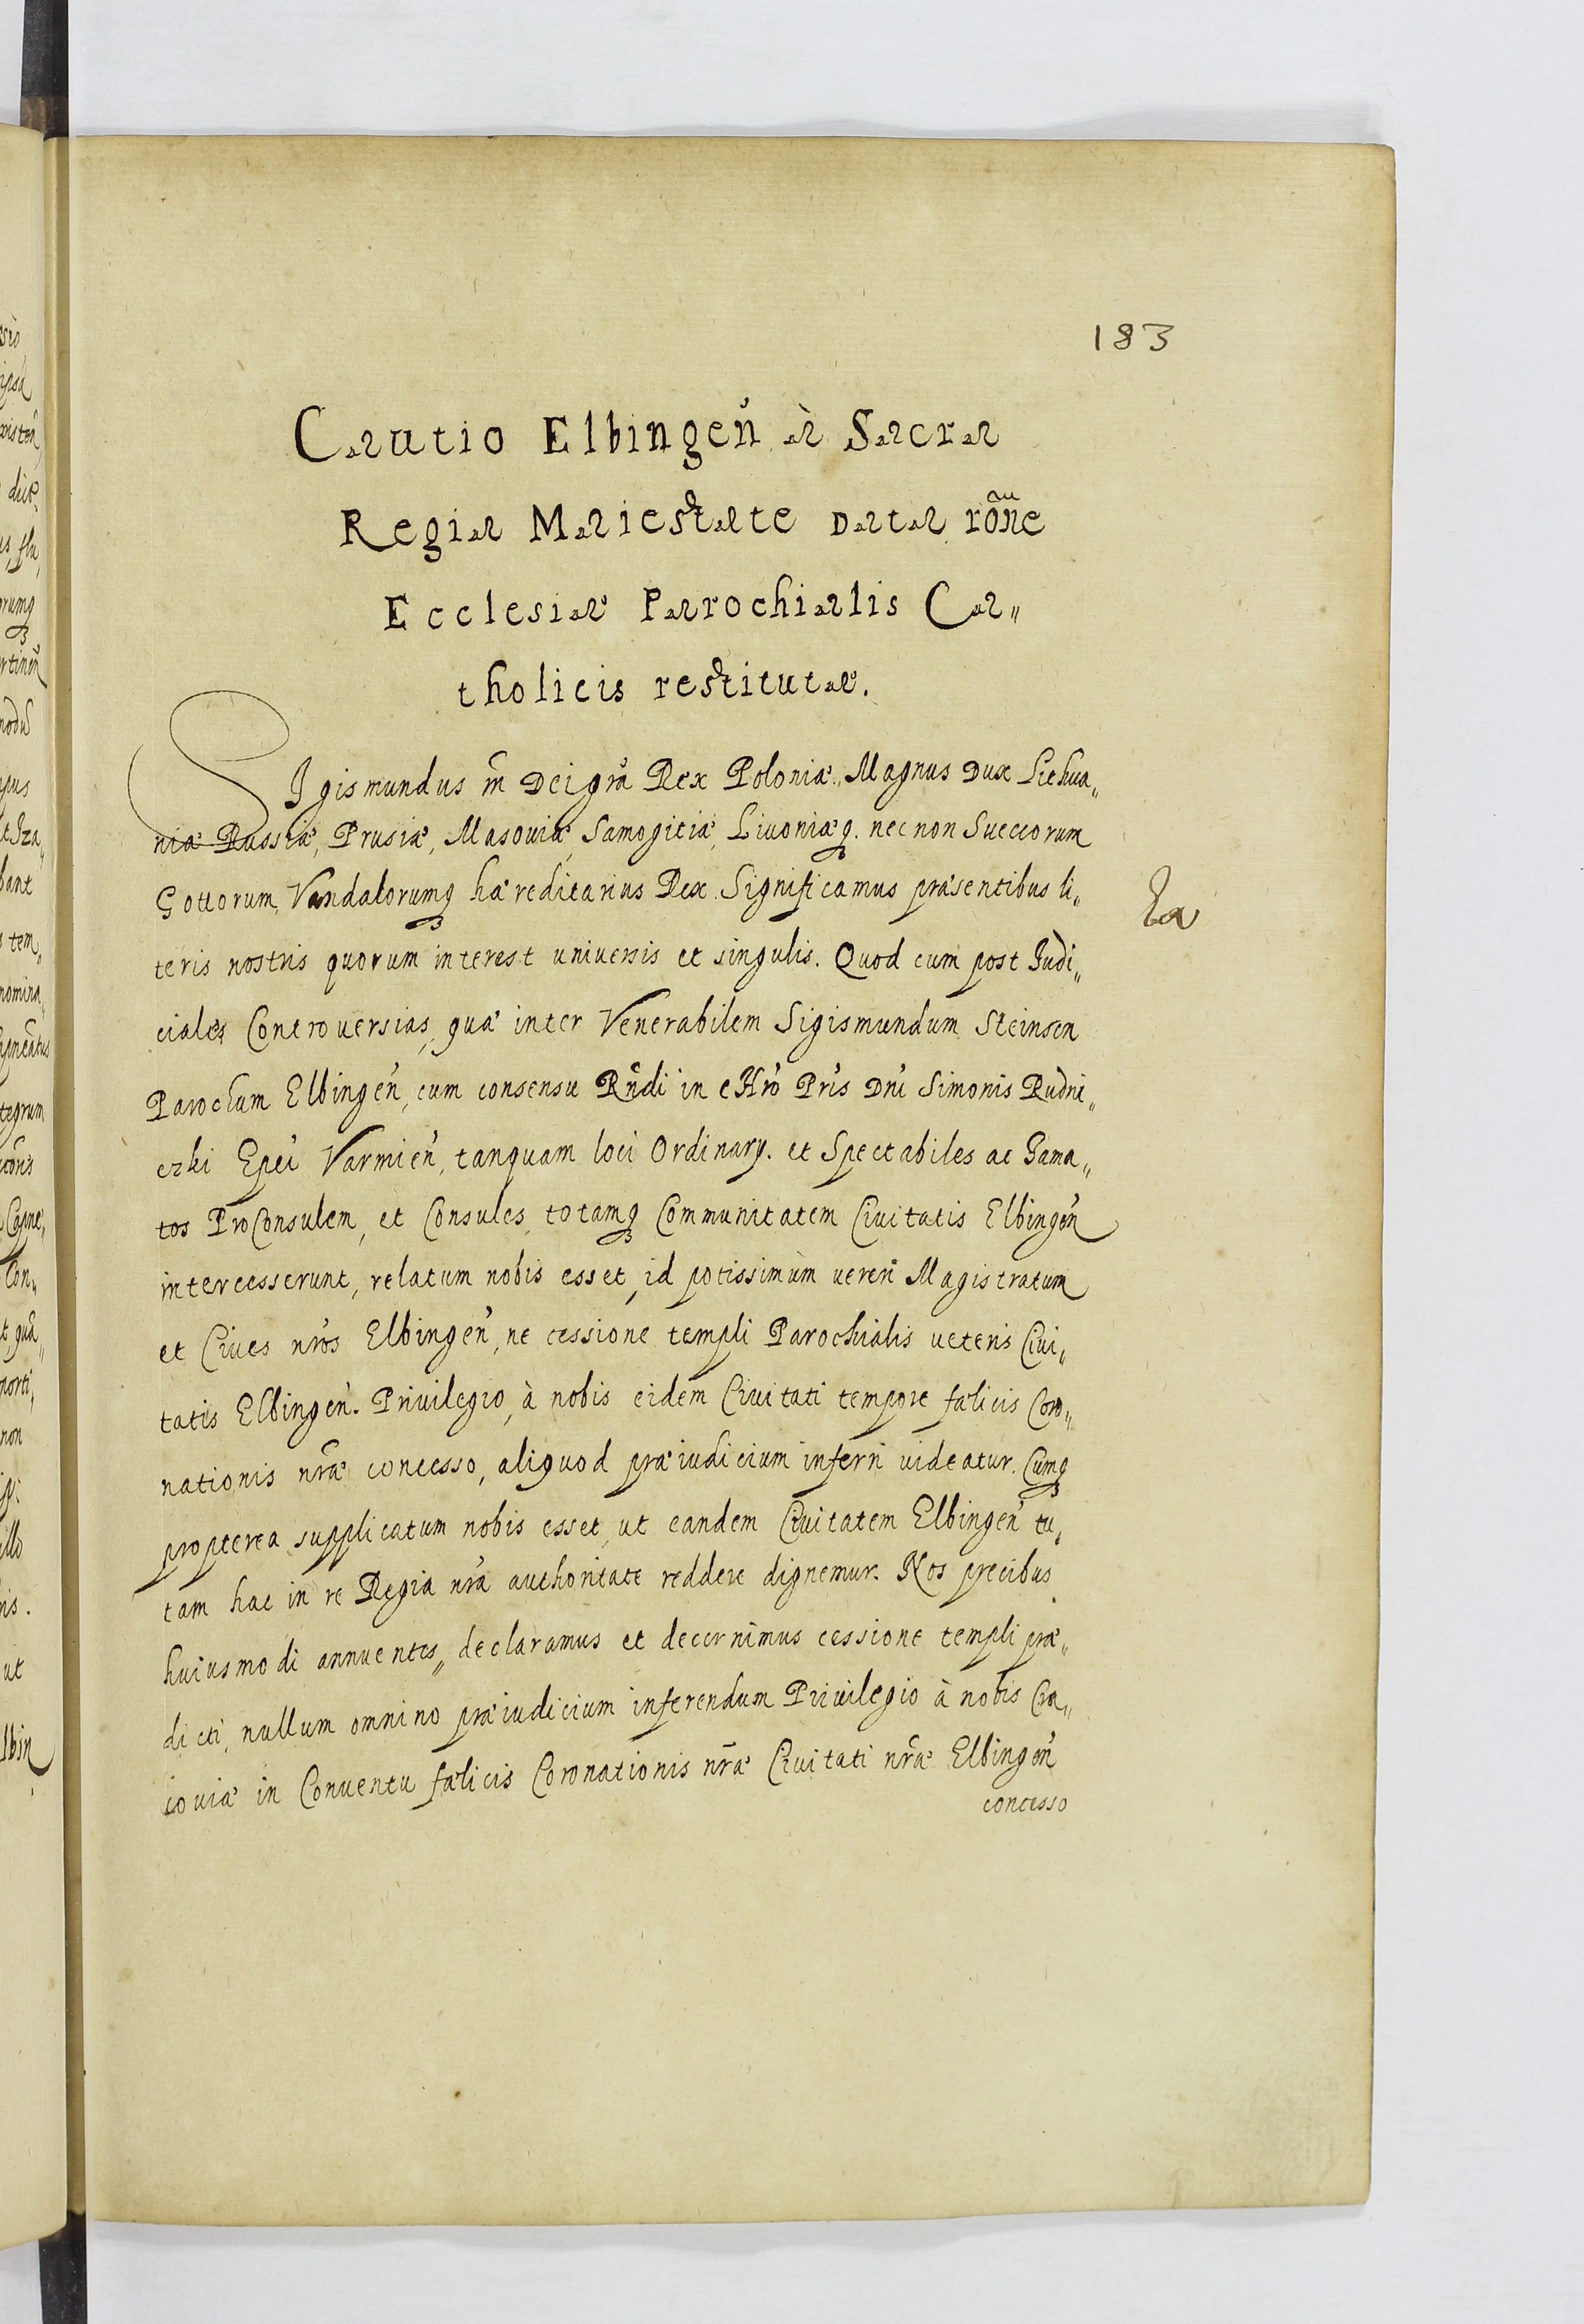 183
Cautio Elbingen̄ à Sacra
Regia Maiestate Data rõne
Ecclesiæ Parochialis Ca„
tholicis restitutæ.
SIgismundus III Dei grã Rex Poloniæ, Magnus Dux Lithua„
niæ Russiæ, Prusiæ, Masouiæ, Samogitiæ, Liuoniæq₃. nec non Sueccorum
Gottorum, Vandalorumq₃ hæreditarius Rex. Significamus præsentibus li„
teris nostris quorum interest uniuersis et singulis. Quod cum post Iudi„
ciales Controuersias, quæ inter Venerabilem Sigismundum Steinsen
Parochum Elbingen̄, cum consensu Rn̄di in Chrō Prīs Dn̄i Simonis Rudni„
czki Epēi Varmien̄, tanquam loci Ordinarÿ. et Spectabiles ac Fama„
tos ProConsulem, et Consules, totamq₃ Communitatem Ciuitatis Elbingen̄
intercesserunt, relatum nobis esset, id potissimùm uereri Magistratum
et Ciues nr̄os Elbingen̄, ne cessione templi Parochialis ueteris Ciui„
tatis Elbingen̄. Priuilegio, à nobis eidem Ciuitati tempore fælicis Coro„
nationis nr̄æ concesso, aliquod præiudicium inferri uideatur. Cumq₃
propterea supplicatum nobis esset, ut eandem Ciuitatem Elbingen̄ tu„
tam hac in re Regia nr̄a authoritate reddere dignemur. Nos precibus
huiusmodi annuentes„ declaramus et decernimus cessione templi præ„
dicti, nullum omnino præiudicium inferendum Priuilegio à nobis Cra„
couiæ in Conuentu fælicis Coronationis nr̄æ Ciuitati nr̄æ Elbingen̄
concesso